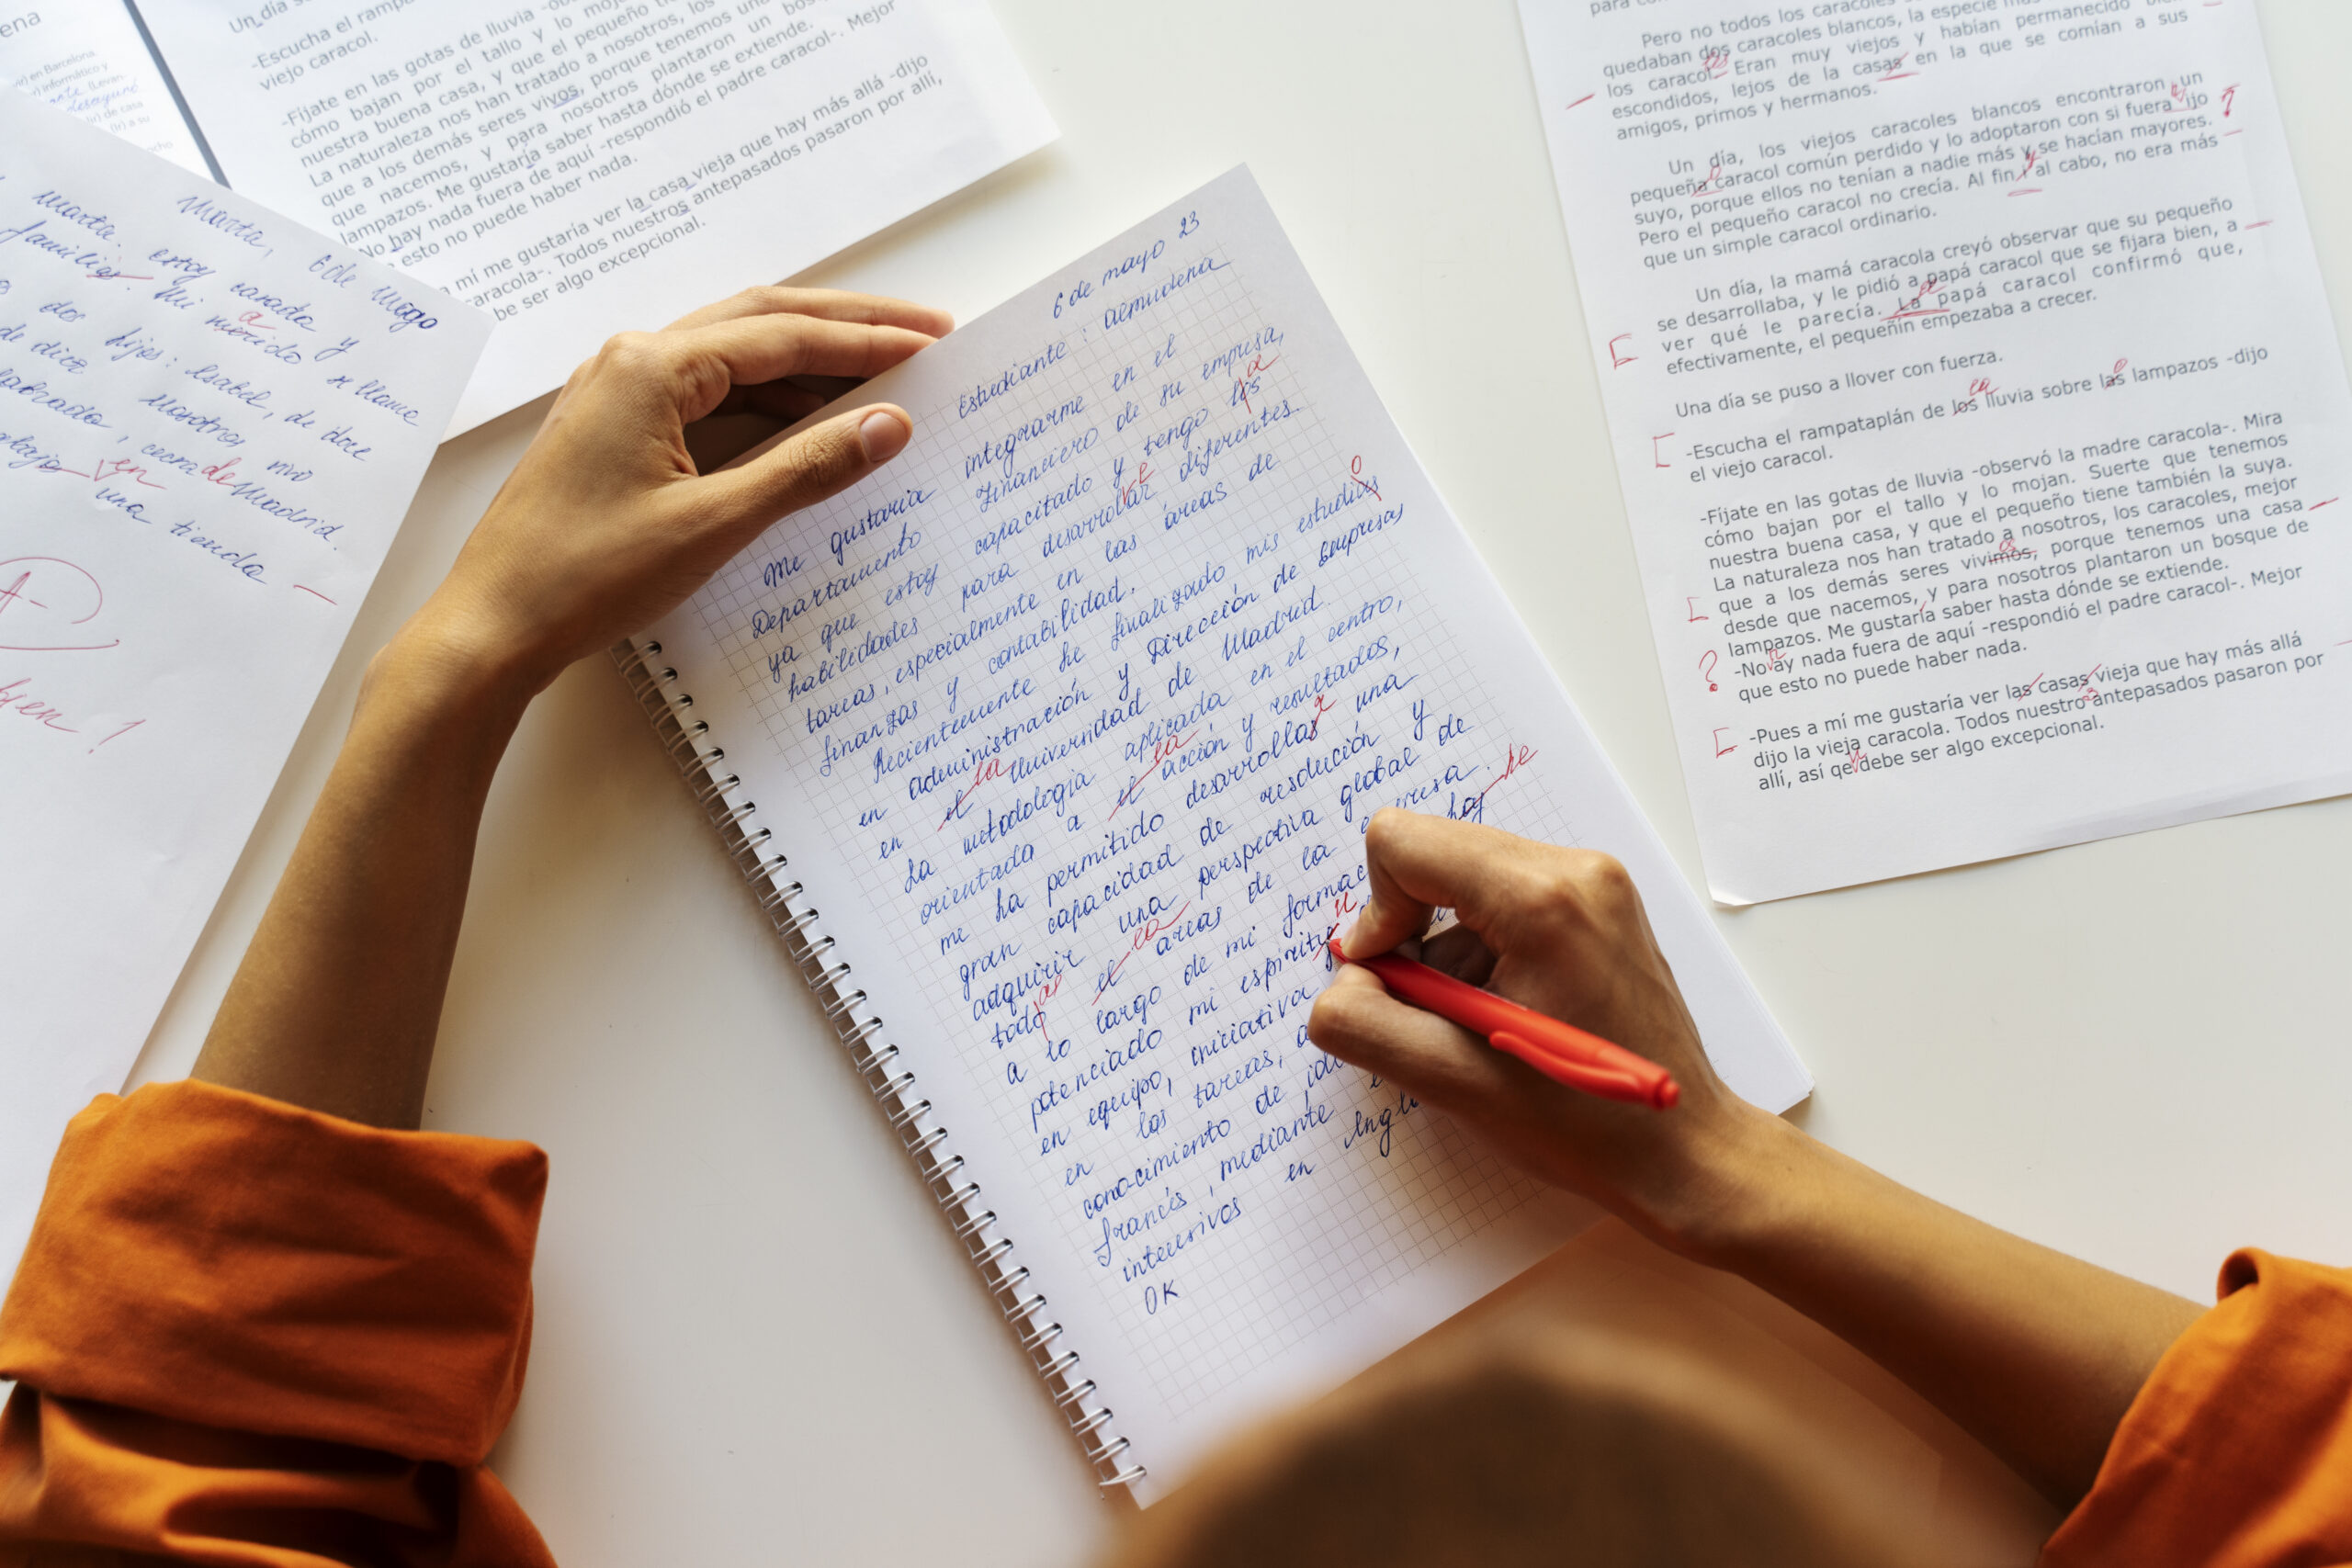 ena
en Barcelona
informático y
(Levan-
desayunó
de casa
a su
Un día s
-Escucha el rampa
viejo caracol.
-Fíjate en las gotas de lluvia -ob
cómo bajan por el tallo y lo moja
nuestra buena casa, y que el pequeño ti
La naturaleza nos han tratado a nosotros, los
que a los demás seres vivos, porque tenemos una
que nacemos, y para nosotros plantaron un bos
lampazos. Me gustaría saber hasta dónde se extiende.
No hay nada fuera de aquí -respondió el padre caracol-. Mejor
esto no puede haber nada.
a mí me gustaría ver la casa vieja que hay más allá -dijo
caracola-. Todos nuestros antepasados pasaron por allí,
be ser algo excepcional.
Marta, 6 de mayo
Marta. estoy casada y
familias. Mi morido se llama
a
dos hijos: Isabel, de doce
de diez nosotros vivo
cecra de Madrid.
en una tienda
A-
bien!
6 de mayo 23
Estudiante: almudena
Me gustaria integrarme en el
Departamento Financiero de su empresa,
ya que estoy capacitado y tengo los
a
habilidades para desarrollar diferentes
e
tareas, especialmente en las áreas de
finanzas y contabilidad.
Recientemente he finalizado mis estudias
o
en administración y Dirección de Empresas
en el Universidad de Madrid.
la
La metodologia aplicada en el centro,
orientada a el acción y resultados,
la
me ha permitido desarrollas una
r
gran capacidad de resolución y
adquirir una perspectiva global de
todo el areas de la empresa.
as la
a lo largo de mi formac haj
he
potenciado mi espiritu
u
en equipo, iniciativa
en las tareas, a
conocimiento de idi
francés, mediante e
intensivos en Ingl
OK
para con
Pero no todos los caracoles
quedaban dos caracoles blancos, la especie más
los caracol. Eran muy viejos y habían permanecido bien
es
escondidos, lejos de la casas en la que se comían a sus
amigos, primos y hermanos.
Un día, los viejos caracoles blancos encontraron un
pequeña caracol común perdido y lo adoptaron con si fuera ijo
o
suyo, porque ellos no tenían a nadie más y se hacían mayores.
Pero el pequeño caracol no crecía. Al fin y al cabo, no era más
que un simple caracol ordinario.
Un día, la mamá caracola creyó observar que su pequeño
se desarrollaba, y le pidió a papá caracol que se fijara bien, a
ver qué le parecía. La papá caracol confirmó que,
efectivamente, el pequeñín empezaba a crecer.
Una día se puso a llover con fuerza.
-Escucha el rampataplán de los lluvia sobre las lampazos -dijo
la o
el viejo caracol.
-Fíjate en las gotas de lluvia -observó la madre caracola-. Mira
cómo bajan por el tallo y lo mojan. Suerte que tenemos
nuestra buena casa, y que el pequeño tiene también la suya.
La naturaleza nos han tratado a nosotros, los caracoles, mejor
que a los demás seres vivimos, porque tenemos una casa
os
desde que nacemos, y para nosotros plantaron un bosque de
lampazos. Me gustaría saber hasta dónde se extiende.
? -No ay nada fuera de aquí -respondió el padre caracol-. Mejor
que esto no puede haber nada.
-Pues a mí me gustaría ver las casas vieja que hay más allá
dijo la vieja caracola. Todos nuestro antepasados pasaron por
s
allí, así qe debe ser algo excepcional.